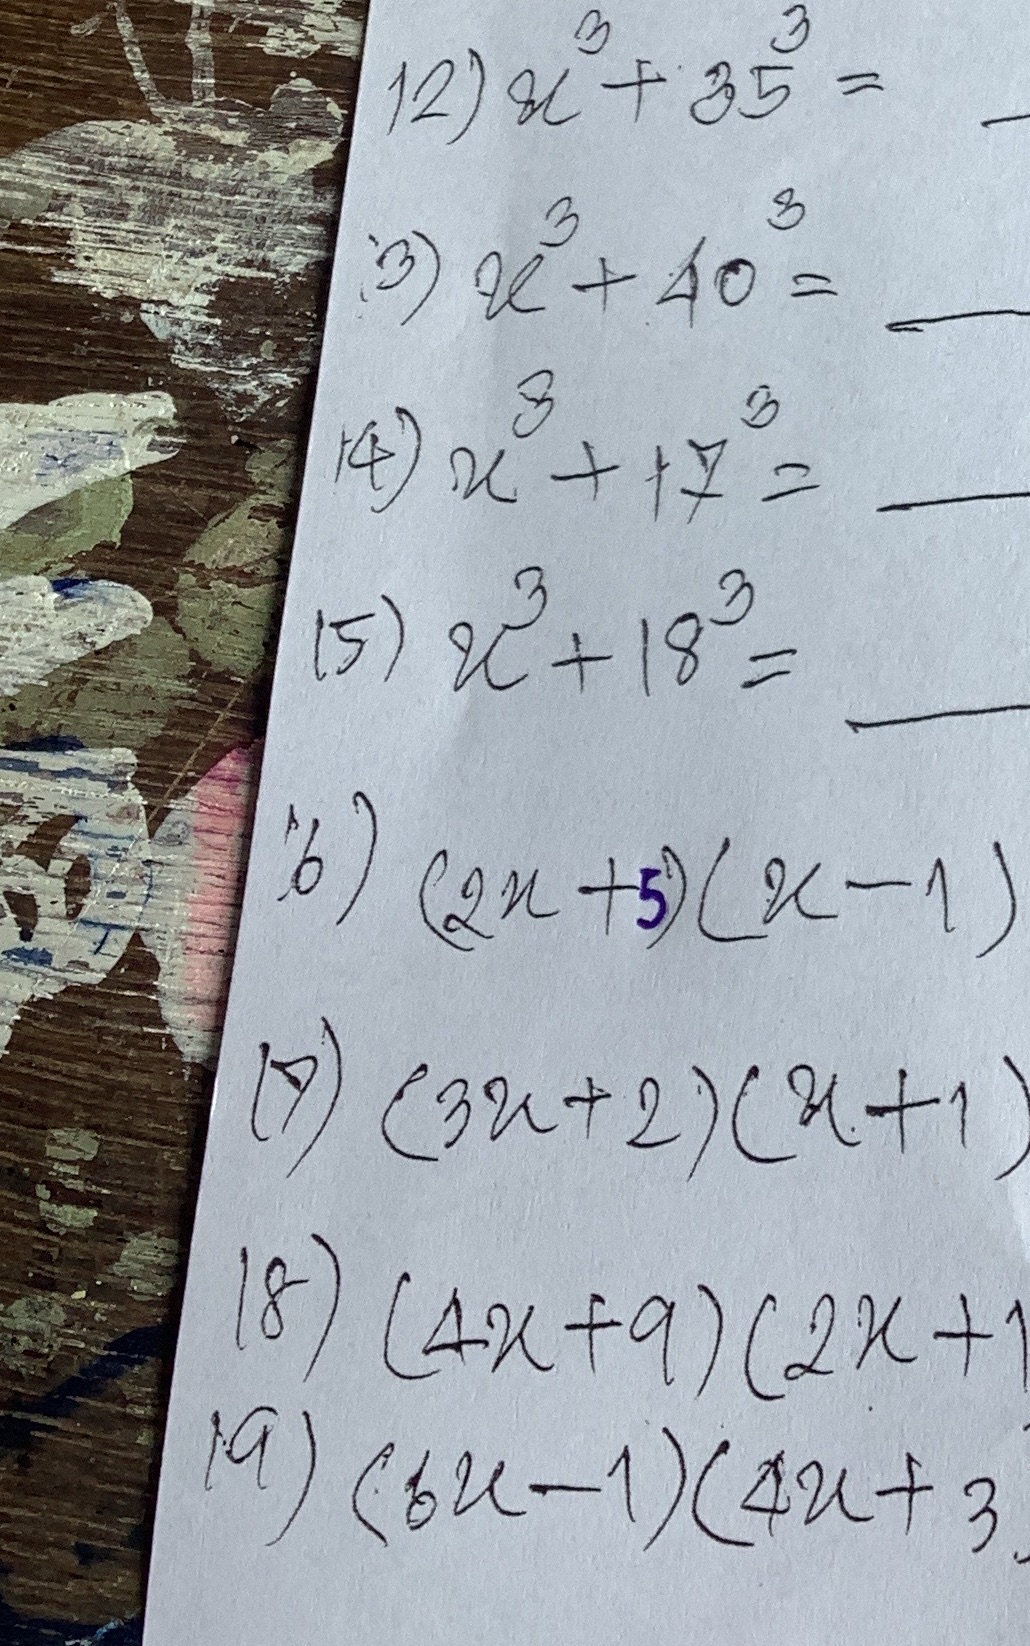 12) x³ + 35³ = __
13) x³ + 40³ = __
14) x³ + 17³ = __
15) x³ + 18³ = __
16) (2x + 5)(x - 1)
17) (3x + 2)(x + 1)
18) (4x + 9)(2x + 1
19) (6x - 1)(4x + 3)